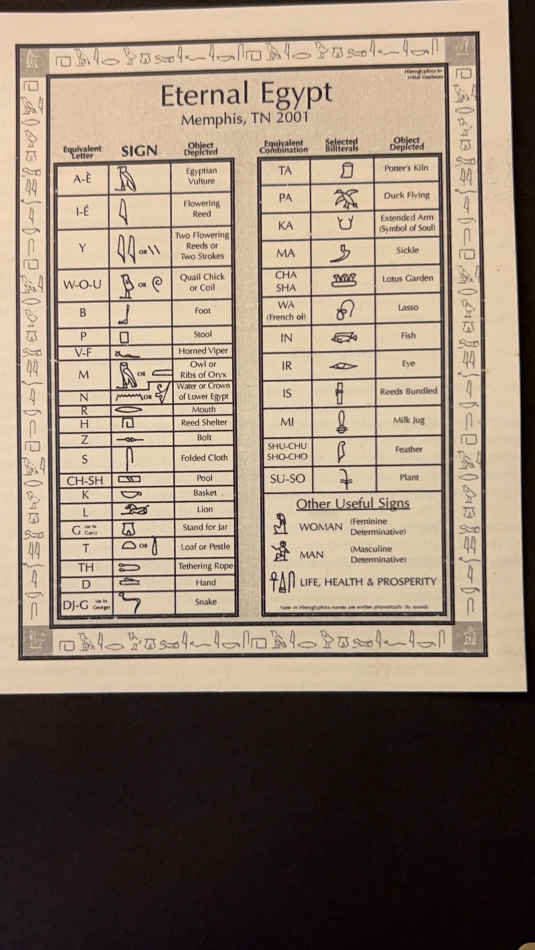 Hieroglyphics by
Eternal Egypt
Memphis, TN 2001
Equivalent Letter SIGN Object Depicted
A-È Egyptian Vulture
I-É Flowering Reed
Y OR Two Flowering Reeds or Two Strokes
W-O-U OR Quail Chick or Coil
B Foot
P Stool
V-F Horned Viper
M OR Owl or Ribs of Oryx
N OR Water or Crown of Lower Egypt
R Mouth
H Reed Shelter
Z Bolt
S Folded Cloth
CH-SH Pool
K Basket
L Lion
G Stand for Jar
T OR Loaf or Pestle
TH Tethering Rope
D Hand
DJ-G as in George Snake
Equivalent Combination Selected Biliterals Object Depicted
TA Potter's Kiln
PA Duck Flying
KA Extended Arm (Symbol of Soul)
MA Sickle
CHA SHA Lotus Garden
WA (French oi) Lasso
IN Fish
IR Eye
IS Reeds Bundled
MI Milk Jug
SHU-CHU SHO-CHO Feather
SU-SO Plant
Other Useful Signs
WOMAN (Feminine Determinative)
MAN (Masculine Determinative)
LIFE, HEALTH & PROSPERITY
Note: In Hieroglyphics names are written phonetically (by sound)